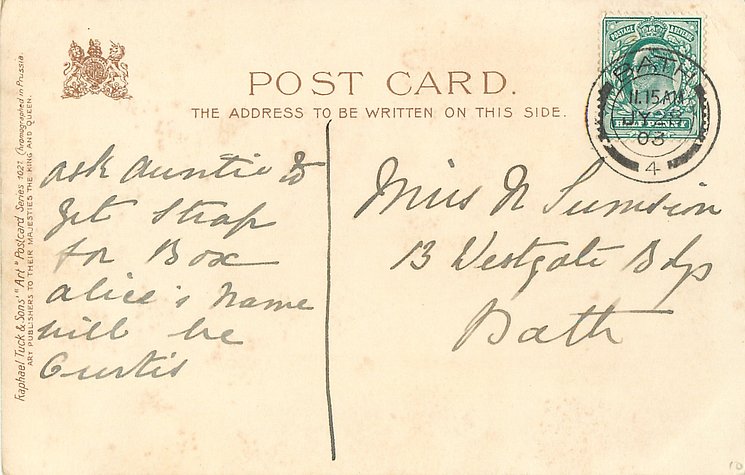 POST CARD.
THE ADDRESS TO BE WRITTEN ON THIS SIDE.
POSTAGE REVENUE
HALFPENNY
BATH
11.15AM
JY 28
03
4
Raphael Tuck & Sons' "Art" Postcard Series 1021. (Chromographed in Prussia.
ART PUBLISHERS TO THEIR MAJESTIES THE KING AND QUEEN.
ask Auntie to
get Strap
for Box
alice's name
will be
Curtis
Miss N Sumsion
13 Westgate Bdgs
Bath
10